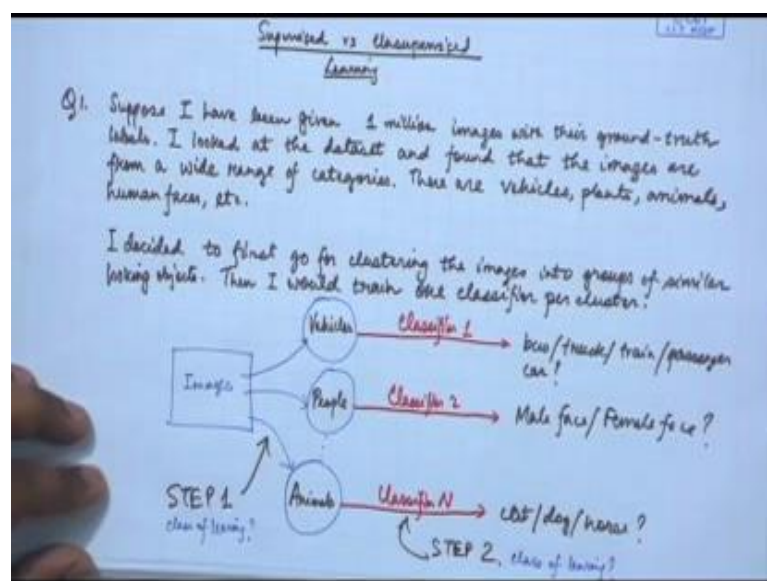 Supervised vs Unsupervised
Learning
Q1. Suppose I have been given 1 million images with their ground-truth
labels. I looked at the dataset and found that the images are
from a wide range of categories. There are vehicles, plants, animals,
human faces, etc.
I decided to first go for clustering the images into groups of similar
looking objects. Then I would train one classifier per cluster.
Vehicles
Classifier 1
bus/truck/train/passenger
car?
Images
People
Classifier 2
Male face/Female face?
STEP 1
class of learning?
Animals
Classifier N
cat/dog/horse?
STEP 2, class of learning?